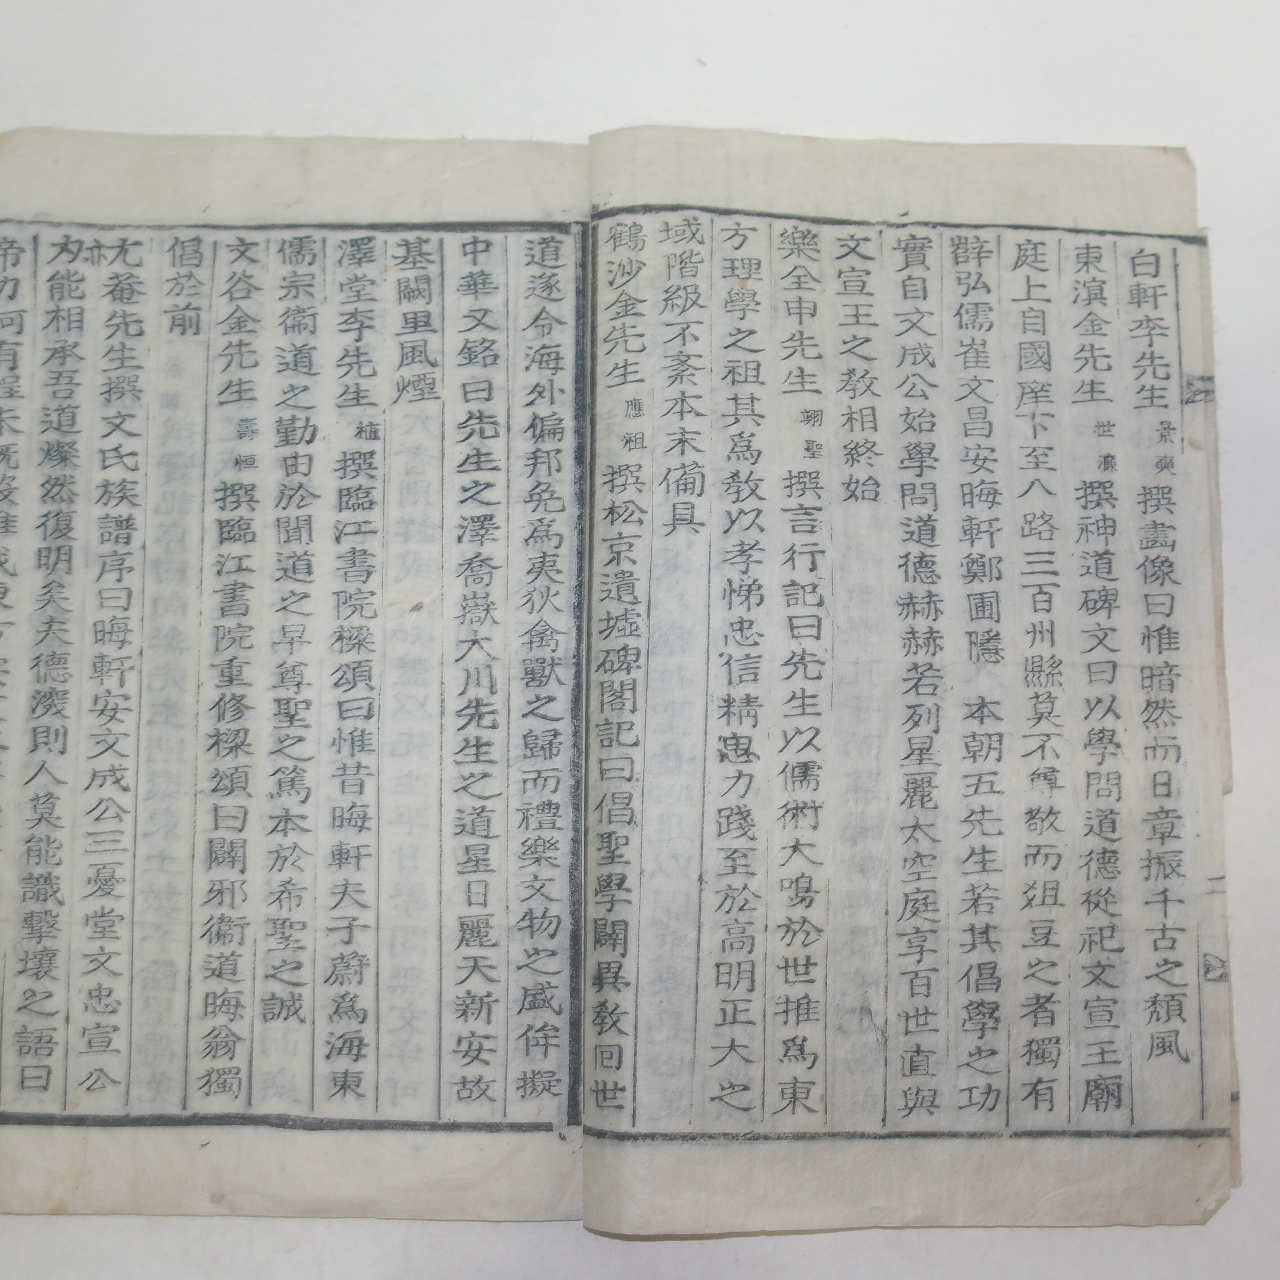 白軒李先生景奭撰畵像曰惟暗然而日章振千古之頹風
東溟金先生世濂撰神道碑文曰以學問道德從祀文宣王廟
庭上自國庠下至八路三百州縣莫不尊敬而俎豆之者獨有
薛弘儒崔文昌安晦軒鄭圃隱 本朝五先生若其倡學之功
實自文成公始學問道德赫赫若列星麗太空庭享百世直與
文宣王之敎相終始
樂全申先生翊聖撰言行記曰先生以儒術大鳴於世推爲東
方理學之祖其爲敎以孝悌忠信精思力踐至於高明正大之
域階級不紊本末備具
鶴沙金先生應祖撰松京遺墟碑閣記曰倡聖學闢異敎回世
道遂令海外偏邦免爲夷狄禽獸之歸而禮樂文物之盛侔擬
中華又銘曰先生之澤喬嶽大川先生之道星日麗天新安故
基闕里風煙
澤堂李先生植撰臨江書院樑頌曰惟昔晦軒夫子蔚爲海東
儒宗衛道之勤由於聞道之早尊聖之篤本於希聖之誠
文谷金先生壽恒撰臨江書院重修樑頌曰闢邪衛道晦翁獨
倡於前
尤菴先生撰文氏族譜序曰晦軒安文成公三憂堂文忠宣公
亦能相承吾道燦然復明矣夫德深則人莫能識擊壤之語曰
帝力何有